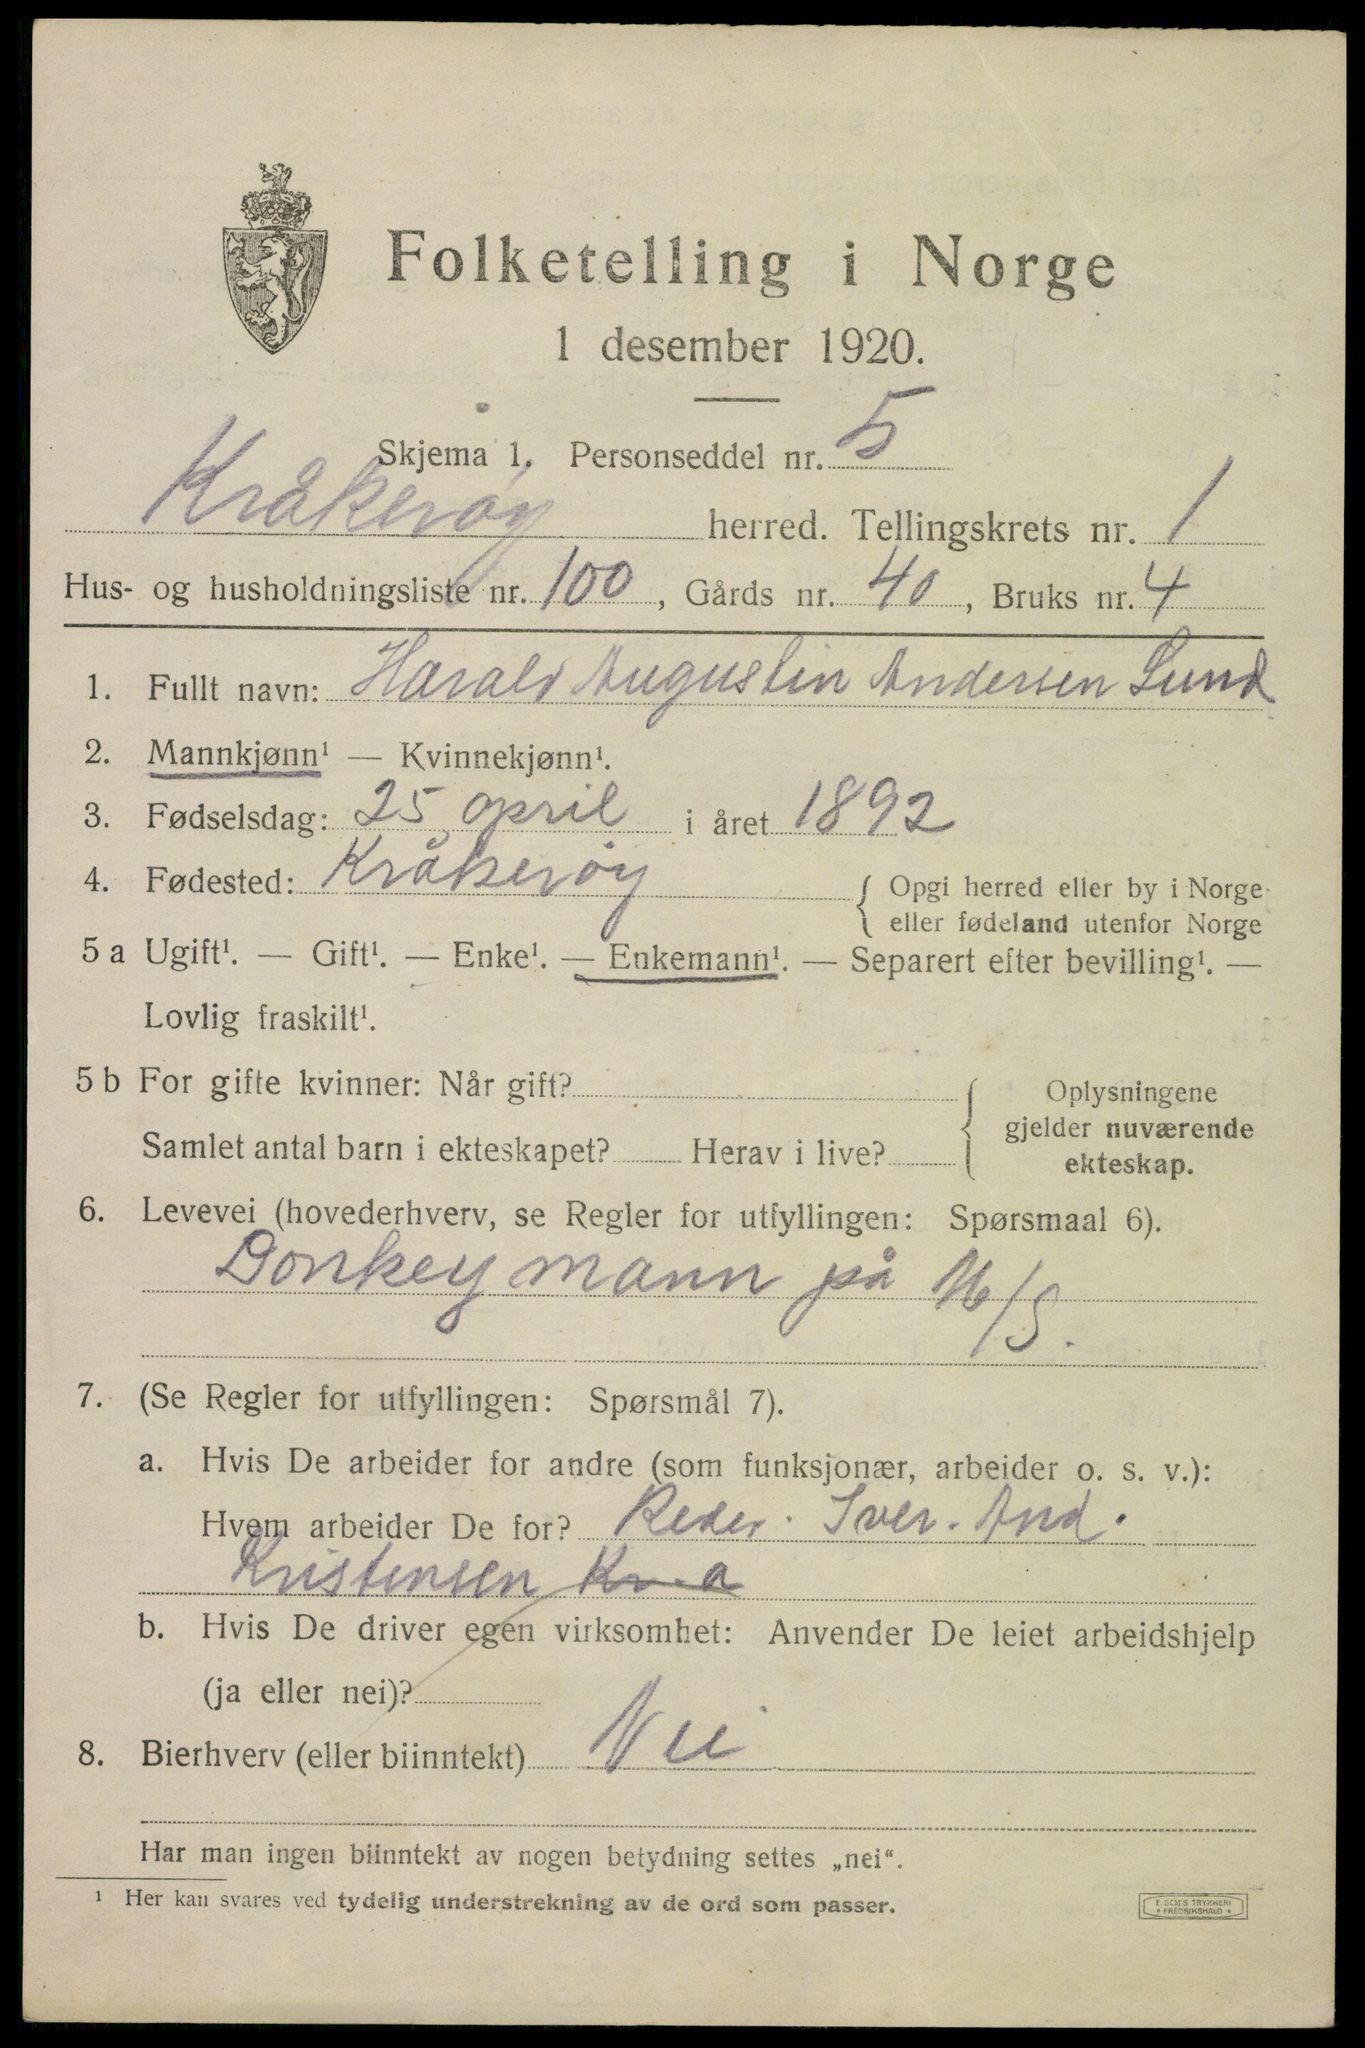 Folketelling i Norge
1 desember 1920.
Skjema 1. Personseddel nr. 5
Kråkerøy herred. Tellingskrets nr. 1
Hus- og husholdningsliste nr. 100, Gårds nr. 40, Bruks nr. 4
1. Fullt navn: Harald Augustin Andersen Lund
2. Mannkjønn¹ — Kvinnekjønn¹.
3. Fødselsdag: 25 april i året 1892
4. Fødested: Kråkerøy { Opgi herred eller by i Norge
eller fødeland utenfor Norge
5 a Ugift¹. — Gift¹. — Enke¹. — Enkemann¹. — Separert efter bevilling¹. —
Lovlig fraskilt¹.
5 b For gifte kvinner: Når gift? { Oplysningene
gjelder nuværende
Samlet antal barn i ekteskapet? Herav i live?
ekteskap.
6. Levevei (hovederhverv, se Regler for utfyllingen: Spørsmaal 6).
Donkeymann på M/S.
7. (Se Regler for utfyllingen: Spørsmål 7).
a. Hvis De arbeider for andre (som funksjonær, arbeider o. s. v.):
Hvem arbeider De for? Reder. Iver. And.
Kristensen Kr.a
b. Hvis De driver egen virksomhet: Anvender De leiet arbeidshjelp
(ja eller nei)?
8. Bierhverv (eller biinntekt) Nei
Har man ingen biinntekt av nogen betydning settes „nei“.
¹ Her kan svares ved tydelig understrekning av de ord som passer.
TRYKKERI
* FREDRIKSHALD *